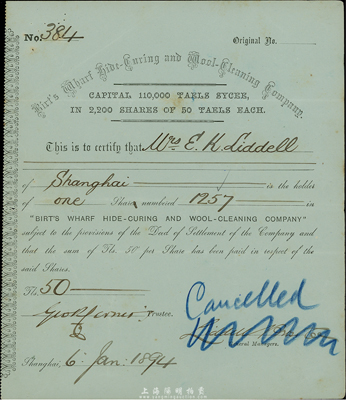 No. 384
Original No.
Birt's Wharf Hide-Curing and Wool-Cleaning Company.
CAPITAL 110,000 TAELS SYCEE,
IN 2,200 SHARES OF 50 TAELS EACH.
This is to certify that Mrs E. K. Liddell
of Shanghai is the holder
of one Share numbered 1257 in
"BIRT'S WHARF HIDE-CURING AND WOOL-CLEANING COMPANY"
subject to the provisions of the Deed of Settlement of the Company and
that the sum of Tls. 50 per Share has been paid in respect of the
said Shares.
Tls. 50
Cancelled
Trustee.
General Managers.
Shanghai, 6 Jan. 1894